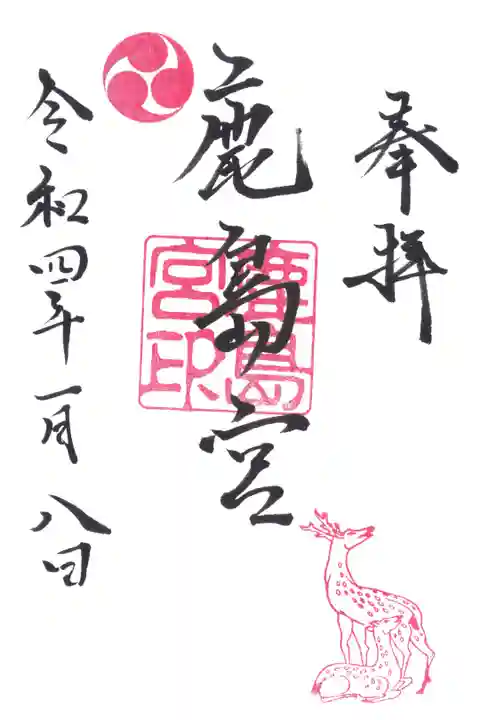 奉拝
鹿島宮
鹿島宮印
令和四年一月八日